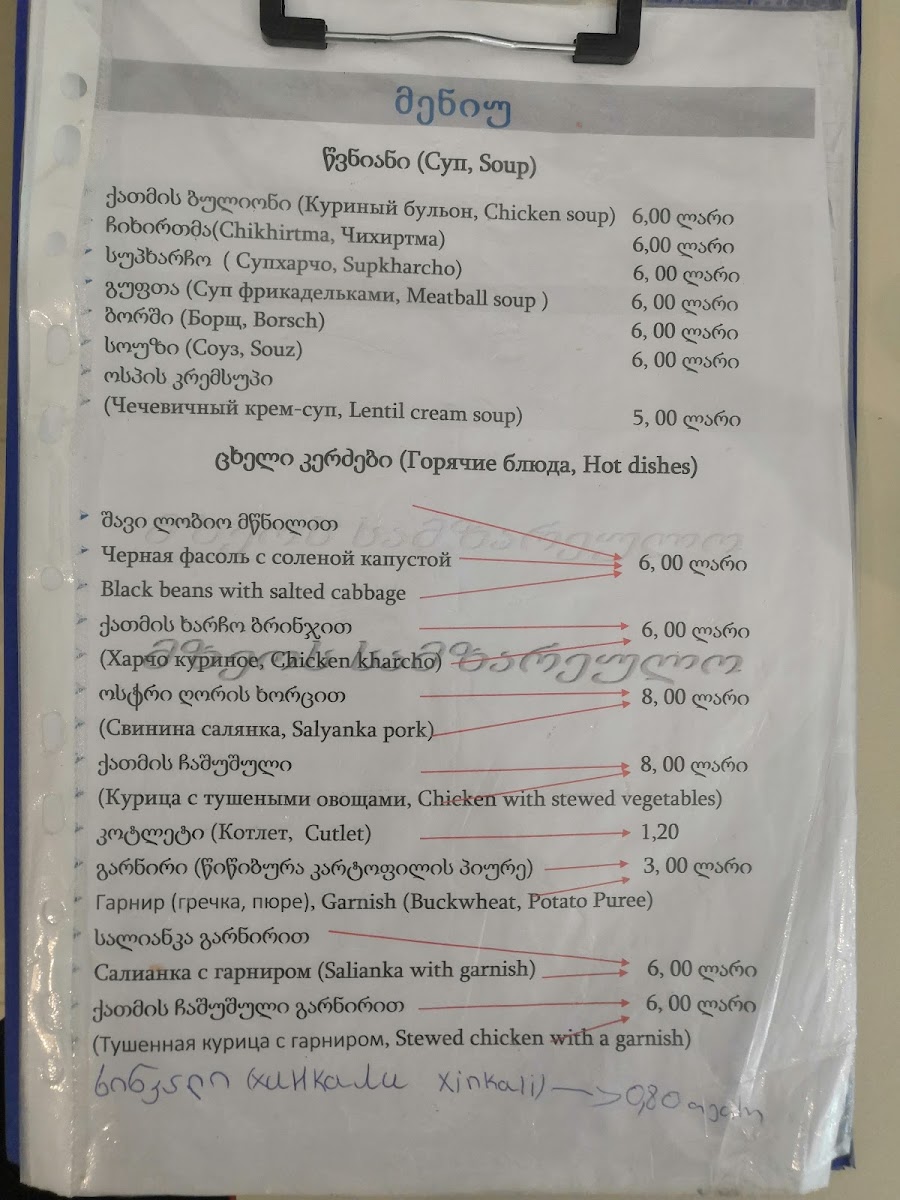 მენიუ
წვნიანი (Суп, Soup)
ქათმის ბულიონი (Куриный бульон, Chicken soup) 6,00 ლარი
ჩიხირთმა(Chikhirtma, Чихиртма) 6,00 ლარი
სუპხარჩო ( Супхарчо, Supkharcho) 6, 00 ლარი
გუფთა (Суп фрикадельками, Meatball soup ) 6, 00 ლარი
ბორში (Борщ, Borsch) 6, 00 ლარი
სოუზი (Соуз, Souz) 6, 00 ლარი
ოსპის კრემსუპი
(Чечевичный крем-суп, Lentil cream soup) 5, 00 ლარი
ცხელი კერძები (Горячие блюда, Hot dishes)
შავი ლობიო მწნილით
Черная фасоль с соленой капустой 6, 00 ლარი
Black beans with salted cabbage
ქათმის ხარჩო ბრინჯით 6, 00 ლარი
(Харчо куриное, Chicken kharcho)
ოსტრი ღორის ხორცით 8, 00 ლარი
(Свинина салянка, Salyanka pork)
ქათმის ჩაშუშული 8, 00 ლარი
(Курица с тушеными овощами, Chicken with stewed vegetables)
კოტლეტი (Котлет, Cutlet) 1,20
გარნირი (წიწიბურა კარტოფილის პიურე) 3, 00 ლარი
Гарнир (гречка, пюре), Garnish (Buckwheat, Potato Puree)
სალიანკა გარნირით
Салианка с гарниром (Salianka with garnish) 6, 00 ლარი
ქათმის ჩაშუშული გარნირით 6, 00 ლარი
(Тушенная курица с гарниром, Stewed chicken with a garnish)
ხინკალი (хинкали xinkali) 0,80